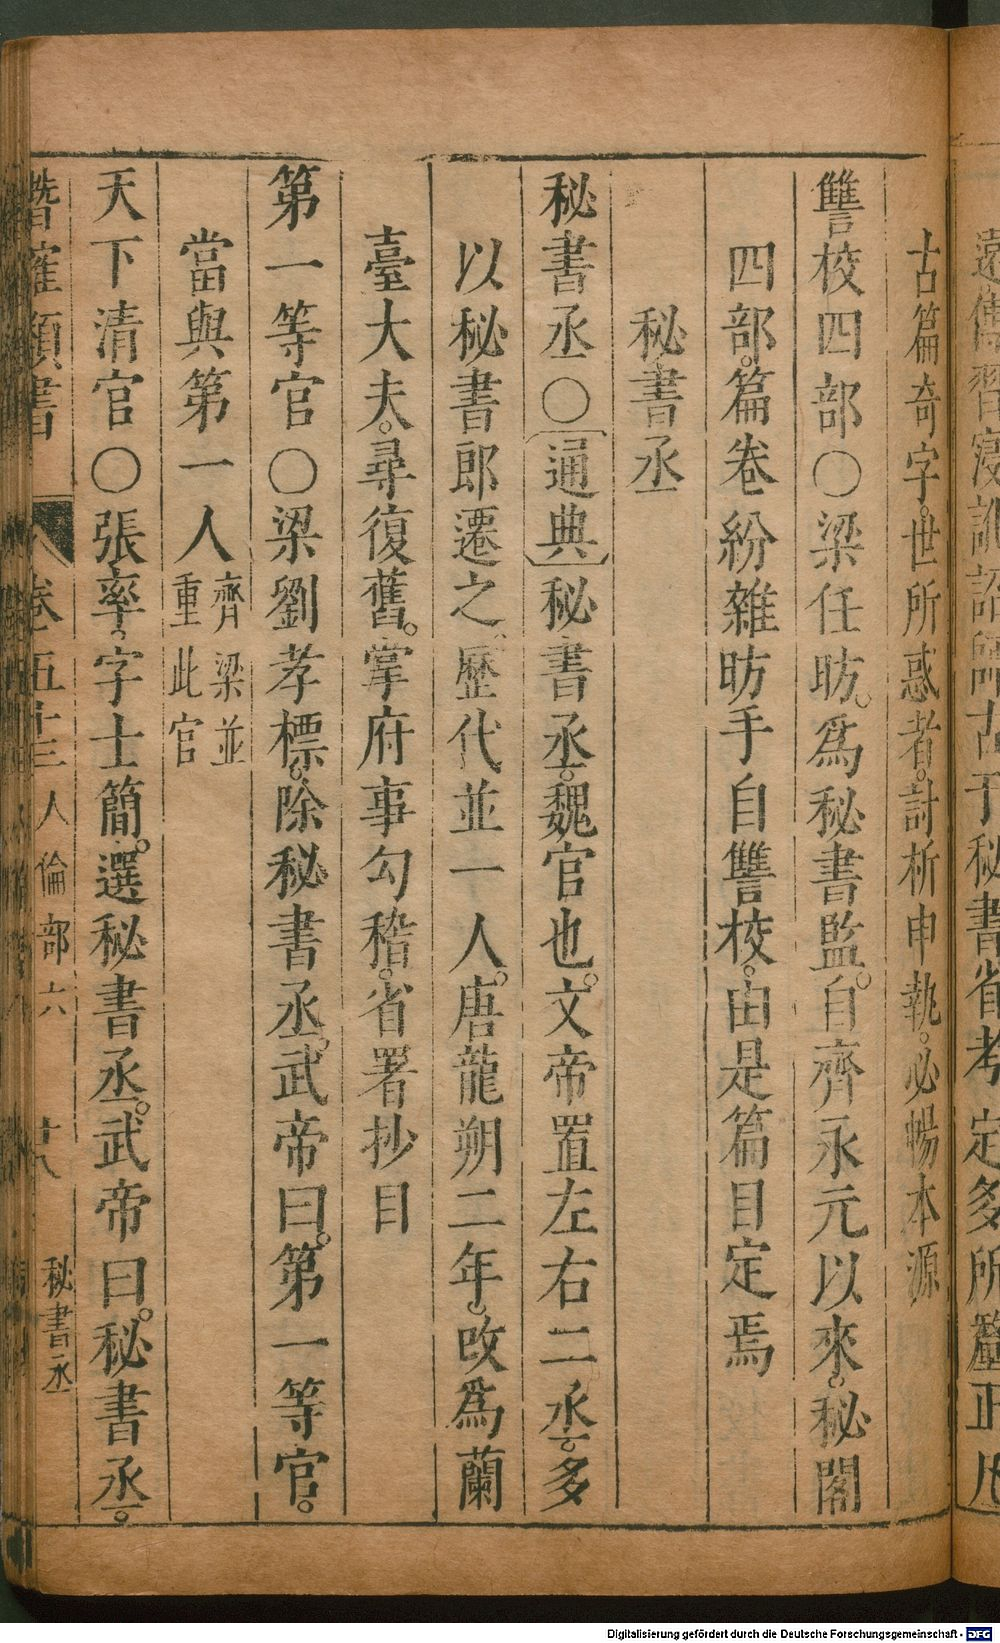 遠傳習寖訛詔師古于秘書省考定多所釐正凡
古篇奇字世所惑者討析申執必暢本源
讐校四部○梁任昉爲秘書監自齊永元以來秘閣
四部篇卷紛雜昉手自讐校由是篇目定焉
秘書丞
秘書丞○〔通典〕秘書丞魏官也文帝置左右二丞多
以秘書郎遷之歷代並一人唐龍朔二年改爲蘭
臺大夫尋復舊掌府事勾稽省署抄目
第一等官○梁劉孝標除秘書丞武帝曰第一等官
當與第一人齊梁並重此官
天下清官○張率字士簡選秘書丞武帝曰秘書丞
類書 卷五十三 人倫部六 廿八 秘書丞
Digitalisierung gefördert durch die Deutsche Forschungsgemeinschaft - DFG